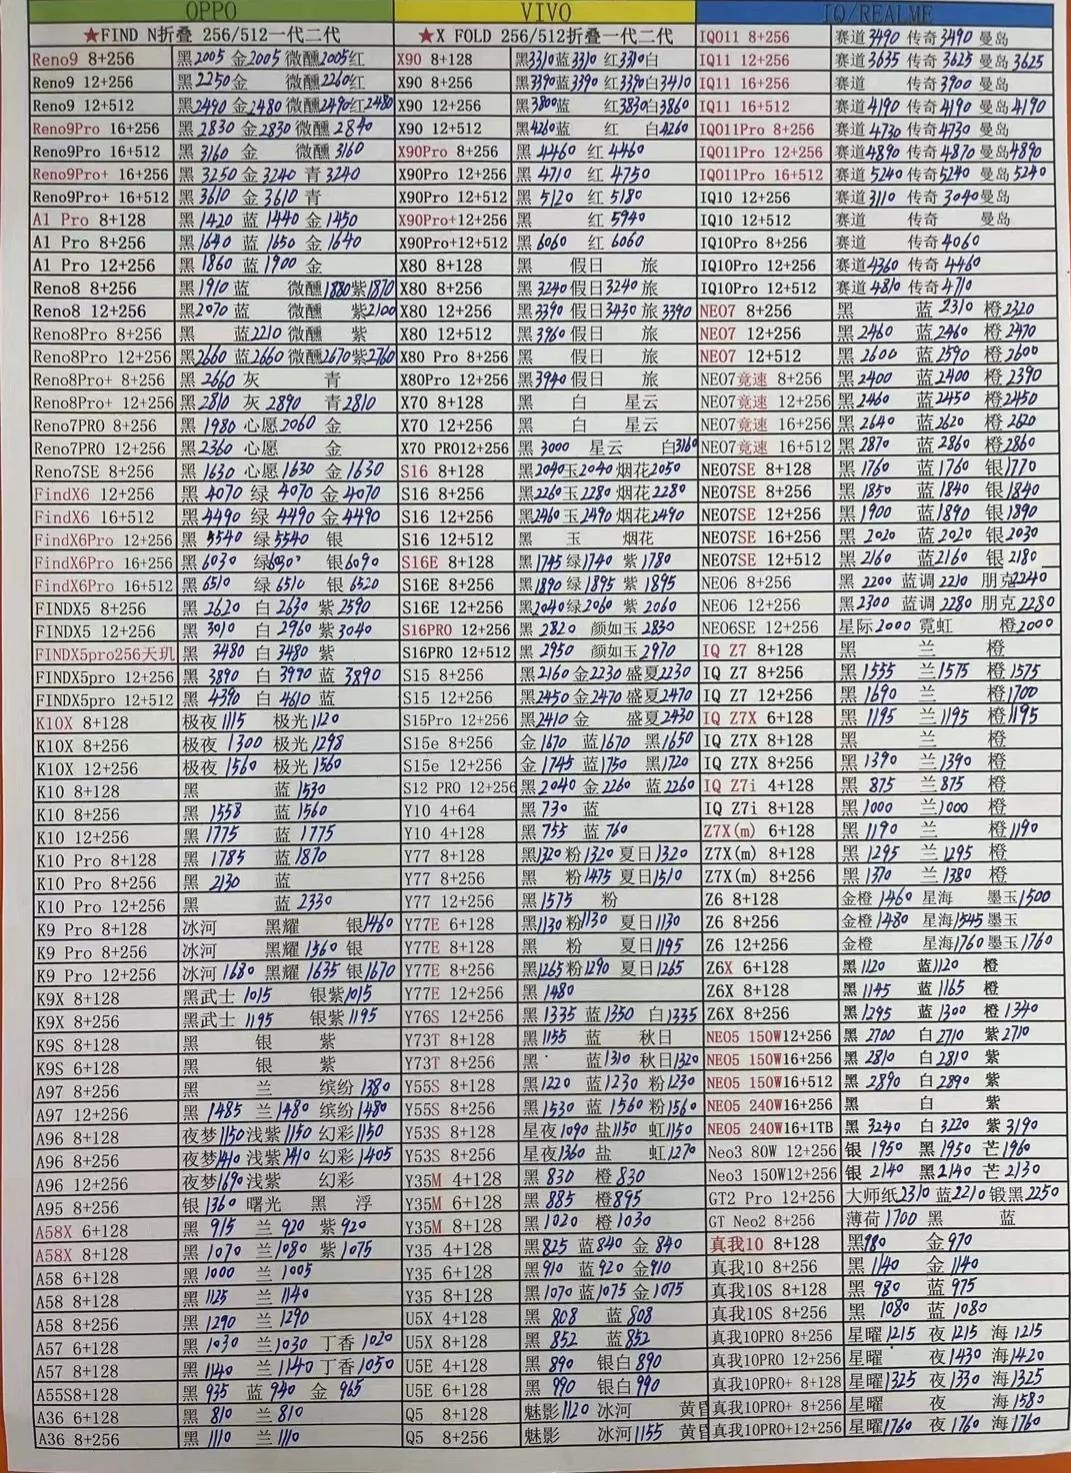 OPPO VIVO IQ/REALME
★FIND N折叠 256/512一代二代 ★X FOLD 256/512折叠一代二代 IQO11 8+256 赛道3490 传奇3490 曼岛
Reno9 8+256 黑2005 金2005 微醺2005红 X90 8+128 黑3310蓝3310 红3310白 IQ11 12+256 赛道3635 传奇3625 曼岛3625
Reno9 12+256 黑2250金 微醺2260红 X90 8+256 黑3390蓝3390 红3390白3410 IQ11 16+256 赛道 传奇3900 曼岛
Reno9 12+512 黑2490金2480 微醺2490红2480 X90 12+256 黑3800蓝 红3830白3860 IQ11 16+512 赛道4190 传奇4190 曼岛4190
Reno9Pro 16+256 黑2830 金2830 微醺2840 X90 12+512 黑4260蓝 红 白4260 IQO11Pro 8+256 赛道4730 传奇4730 曼岛
Reno9Pro 16+512 黑3160 金 微醺3160 X90Pro 8+256 黑4460 红4460 IQO11Pro 12+256 赛道4890 传奇4870 曼岛4890
Reno9Pro+ 16+256 黑3250 金3240 青3240 X90Pro 12+256 黑4710 红4750 IQO11Pro 16+512 赛道5240 传奇5240 曼岛5240
Reno9Pro+ 16+512 黑3610 金3610 青 X90Pro 12+512 黑5120 红5180 IQ10 12+256 赛道3110 传奇3040曼岛
A1 Pro 8+128 黑1420 蓝1440 金1450 X90Pro+12+256 黑 红5940 IQ10 12+512 赛道 传奇 曼岛
A1 Pro 8+256 黑1640 蓝1650 金1640 X90Pro+12+512 黑6060 红6060 IQ10Pro 8+256 赛道 传奇4060
A1 Pro 12+256 黑1860 蓝1900 金 X80 8+128 黑 假日 旅 IQ10Pro 12+256 赛道4360 传奇4460
Reno8 8+256 黑1910蓝 微醺1880紫1870 X80 8+256 黑3240假日3240旅 IQ10Pro 12+512 赛道4810 传奇4710
Reno8 12+256 黑2070蓝 微醺 紫2100 X80 12+256 黑3390 假日3430 旅3390 NEO7 8+256 黑 蓝2310 橙2320
Reno8Pro 8+256 黑 蓝2210 微醺 紫 X80 12+512 黑3960 假日 旅 NEO7 12+256 黑2460 蓝2460 橙2470
Reno8Pro 12+256 黑2660 蓝2660 微醺2670紫2760 X80 Pro 8+256 黑 假日 旅 NEO7 12+512 黑2600 蓝2590 橙2600
Reno8Pro+ 8+256 黑2660 灰 青 X80Pro 12+256 黑3940 假日 旅 NEO7竞速 8+256 黑2400 蓝2400 橙2390
Reno8Pro+ 12+256 黑2810 灰2890 青2810 X70 8+128 黑 白 星云 NEO7竞速 12+256 黑2460 蓝2450 橙2450
Reno7PRO 8+256 黑1980 心愿2060 金 X70 12+256 黑 白 星云 NEO7竞速 16+256 黑2640 蓝2620 橙2620
Reno7PRO 12+256 黑2360 心愿 金 X70 PRO12+256 黑3000 星云 白3160 NEO7竞速 16+512 黑2870 蓝2860 橙2860
Reno7SE 8+256 黑1630 心愿1630 金1630 S16 8+128 黑2040玉2040烟花2050 NEO7SE 8+128 黑1760 蓝1760 银1770
FindX6 12+256 黑4070 绿4070 金4070 S16 8+256 黑2260玉2280烟花2280 NEO7SE 8+256 黑1850 蓝1840 银1840
FindX6 16+512 黑4490 绿4490 金4490 S16 12+256 黑2460玉2490烟花2490 NEO7SE 12+256 黑1900 蓝1890 银1890
FindX6Pro 12+256 黑5540 绿5540 银 S16 12+512 黑 玉 烟花 NEO7SE 16+256 黑2020 蓝2020 银2030
FindX6Pro 16+256 黑6030 绿6030 银6090 S16E 8+128 黑1745绿1740 紫1780 NEO7SE 12+512 黑2160 蓝2160 银2180
FindX6Pro 16+512 黑6510 绿6510 银6520 S16E 8+256 黑1890绿1895 紫1895 NEO6 8+256 黑2200 蓝调2210 朋克2240
FINDX5 8+256 黑2620 白2630 紫2590 S16E 12+256 黑2040绿2060 紫2060 NEO6 12+256 黑2300 蓝调2280 朋克2280
FINDX5 12+256 黑3010 白2960 紫3040 S16PRO 12+256 黑2820 颜如玉2830 NEO6SE 12+256 星际2000 霓虹 橙2000
FINDX5pro256天玑 黑3480 白3480 紫 S16PRO 12+512 黑2950 颜如玉2970 IQ Z7 8+128 黑 兰 橙
FINDX5pro 12+256 黑3890 白3970 蓝3890 S15 8+256 黑2160金2230盛夏2230 IQ Z7 8+256 黑1555 兰1575 橙1575
FINDX5pro 12+512 黑4390 白4610 蓝 S15 12+256 黑2450金2470盛夏2470 IQ Z7 12+256 黑1690 兰 橙1700
K10X 8+128 极夜1115 极光1120 S15Pro 12+256 黑2410 金 盛夏2430 IQ Z7X 6+128 黑1195 兰1195 橙1195
K10X 8+256 极夜1300 极光1298 S15e 8+256 金1670 蓝1670 黑1650 IQ Z7X 8+128 黑 兰 橙
K10X 12+256 极夜1560 极光1560 S15e 12+256 金1745 蓝1750 黑1720 IQ Z7X 8+256 黑1390 兰1390 橙
K10 8+128 黑 蓝1530 S12 PRO 12+256 黑2040 金2260 蓝2260 IQ Z7i 4+128 黑875 兰875 橙
K10 8+256 黑1558 蓝1560 Y10 4+64 黑730 蓝 IQ Z7i 8+128 黑1000 兰1000 橙
K10 12+256 黑1775 蓝1775 Y10 4+128 黑755 蓝760 Z7X(m) 6+128 黑1190 兰 橙1190
K10 Pro 8+128 黑1785 蓝1870 Y77 8+128 黑1320粉1320夏日1320 Z7X(m) 8+128 黑1295 兰1295 橙
K10 Pro 8+256 黑2130 蓝 Y77 8+256 黑 粉1475 夏日1510 Z7X(m) 8+256 黑1370 兰1380 橙
K10 Pro 12+256 黑 蓝2330 Y77 12+256 黑1575 粉 Z6 8+128 金橙1460 星海 墨玉1500
K9 Pro 8+128 冰河 黑耀 银1460 Y77E 6+128 黑1130粉1130 夏日1130 Z6 8+256 金橙1480 星海1545墨玉
K9 Pro 8+256 冰河 黑耀1560银 Y77E 8+128 黑 粉 夏日1195 Z6 12+256 金橙 星海1760墨玉1760
K9 Pro 12+256 冰河1680 黑耀1635 银1670 Y77E 8+256 黑1265粉1290 夏日1265 Z6X 6+128 黑1120 蓝1120 橙
K9X 8+128 黑武士1015 银紫1015 Y77E 12+256 黑1480 Z6X 8+128 黑1145 蓝1165 橙
K9X 8+256 黑武士1195 银紫1195 Y76S 12+256 黑1335 蓝1350 白1335 Z6X 8+256 黑1295 蓝1300 橙1340
K9S 8+128 黑 银 紫 Y73T 8+128 黑1155 蓝 秋日 NEO5 150W12+256 黑2700 白2710 紫2710
K9S 6+128 黑 银 紫 Y73T 8+256 黑 蓝1310 秋日1320 NEO5 150W16+256 黑2810 白2810 紫
A97 8+256 黑 兰 缤纷1380 Y55S 8+128 黑1220 蓝1230 粉1230 NEO5 150W16+512 黑2890 白2890 紫
A97 12+256 黑1485 兰1480 缤纷1480 Y55S 8+256 黑1530 蓝1560 粉1560 NEO5 240W16+256 黑 白 紫
A96 8+128 夜梦1150浅紫1150 幻彩1150 Y53S 8+128 星夜1090 盐1150 虹1150 NEO5 240W16+1TB 黑3240 白3220 紫3190
A96 8+256 夜梦1410浅紫1410 幻彩1405 Y53S 8+256 星夜1360 盐 虹1270 Neo3 80W 12+256 银1950 黑1950 芒1960
A96 12+256 夜梦1690浅紫 幻彩 Y35M 4+128 黑830 橙830 Neo3 150W12+256 银2140 黑2140 芒2130
A95 8+256 银1360 曙光 黑 浮 Y35M 6+128 黑885 橙895 GT2 Pro 12+256 大师纸2310 蓝2210锻黑2250
A58X 6+128 黑915 兰920 紫920 Y35M 8+128 黑1020 橙1030 GT Neo2 8+256 薄荷1700 黑 蓝
A58X 8+128 黑1070 兰1080 紫1075 Y35 4+128 黑825 蓝840 金840 真我10 8+128 黑980 金970
A58 6+128 黑1000 兰1005 Y35 6+128 黑910 蓝920 金910 真我10 8+256 黑1140 金1140
A58 8+128 黑1125 兰1140 Y35 8+128 黑1070蓝1075金1075 真我10S 8+128 黑980 蓝975
A58 8+256 黑1290 兰1290 U5X 4+128 黑808 蓝808 真我10S 8+256 黑1080 蓝1080
A57 6+128 黑1030 兰1030 丁香1020 U5X 8+128 黑852 蓝852 真我10PRO 8+256 星曜1215 夜1215 海1215
A57 8+128 黑1140 兰1140丁香1050 U5E 4+128 黑890 银白890 真我10PRO 12+256 星曜 夜1430 海1420
A55S8+128 黑935 蓝940 金965 U5E 6+128 黑990 银白990 真我10PRO+ 8+128 星曜1325 夜1330 海1325
A36 6+128 黑810 兰810 Q5 8+128 魅影1120 冰河 黄昏 真我10PRO+ 8+256 星曜 夜 海1580
A36 8+256 黑1110 兰1110 Q5 8+256 魅影 冰河1155 黄昏 真我10PRO+12+256 星曜1760 夜1760 海1760